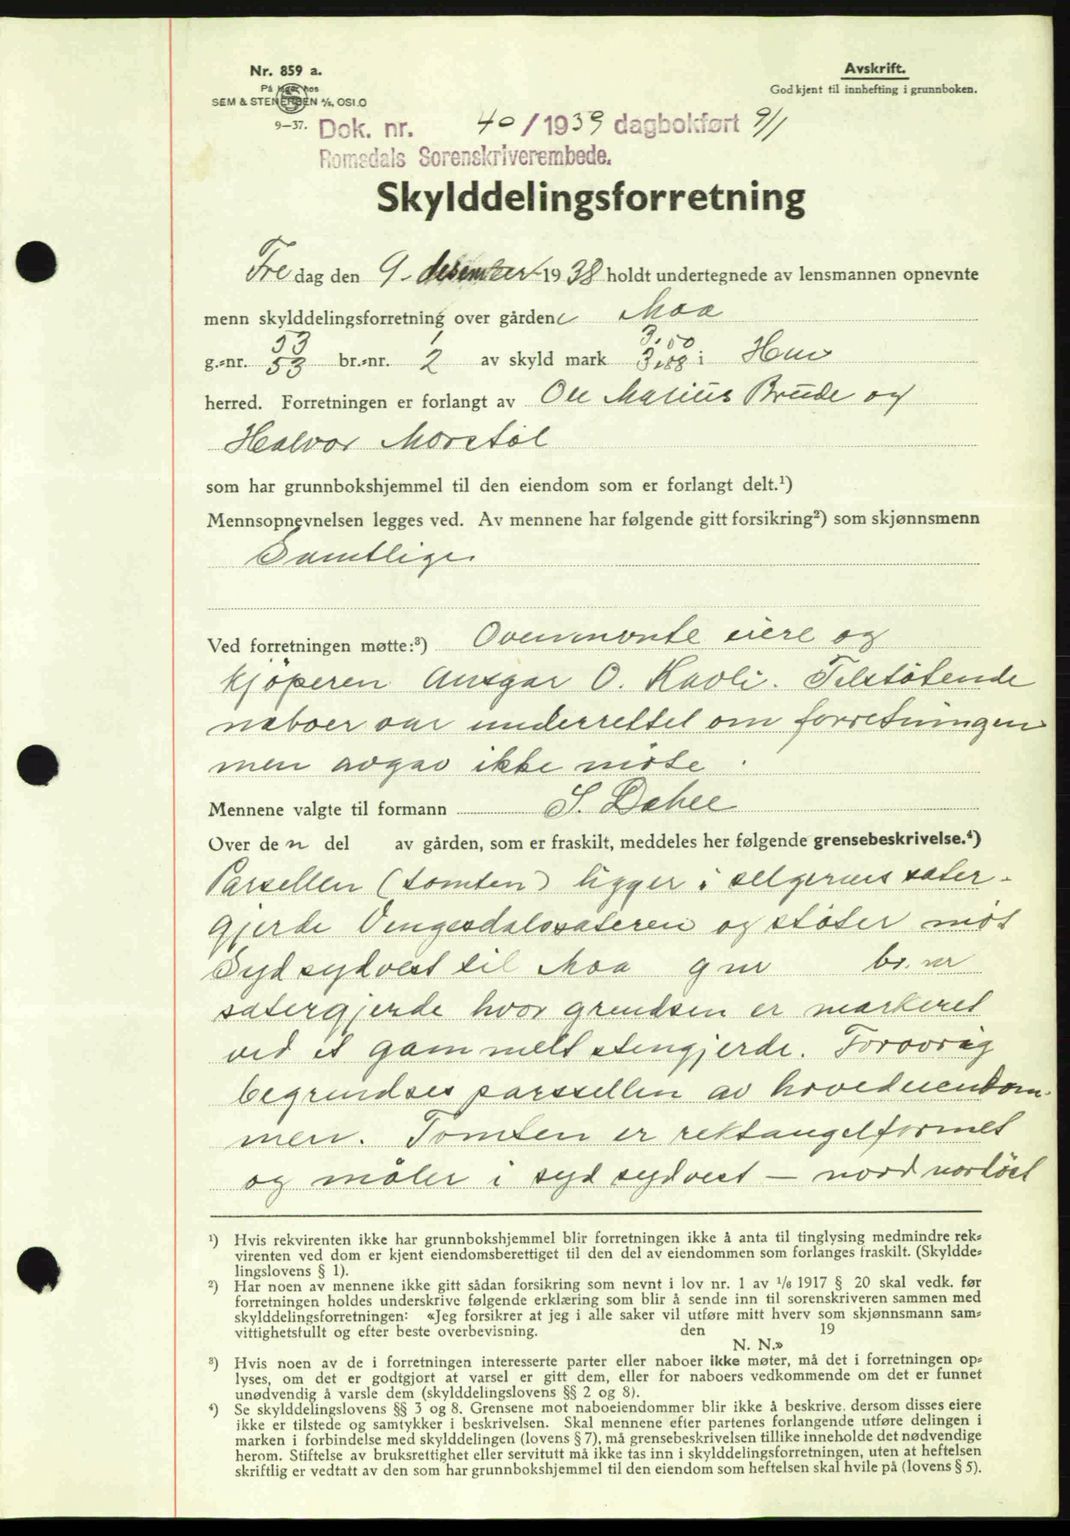 Nr. 859 a.
På lager hos
SEM & STENERSEN A/S, OSLO
9—37.
Avskrift.
Godkjent til innhefting i grunnboken.
Dok. nr. 40 / 1939 dagbokført 9/1
Romsdals Sorenskriverembede.
Skylddelingsforretning
Fredag den 9. desember 1938 holdt undertegnede av lensmannen opnevnte
menn skylddelingsforretning over gården Moa
g.-nr. 53 53 br.-nr. 1 2 av skyld mark 3,50 3,88 i Hen
herred. Forretningen er forlangt av Ole Marius Brude og
Halvor Morstøl
som har grunnbokshjemmel til den eiendom som er forlangt delt.¹)
Mennsopnevnelsen legges ved. Av mennene har følgende gitt forsikring²) som skjønnsmenn
Samtlige.
Ved forretningen møtte:³) Ovennevnte eiere og
kjøperen Ansgar O. Kavli. Tilstøtende
naboer var underrettet om forretningen
men avgav ikke møte.
Mennene valgte til formann S. Dahle
Over den del av gården, som er fraskilt, meddeles her følgende grensebeskrivelse.⁴)
Parsellen (tomten) ligger i selgernes sater-
gjerde Vengedalssateren og støter mot
Sydsydvest til Moa gnr br. nr
satergjerde hvor grendsen er markeret
ved et gammelt stengjerde. Forøvrig
begrendses parssellen av hovedeiendom-
men. Tomten er rektangelformet
og måler i syd sydvest — nord nordøst
¹) Hvis rekvirenten ikke har grunnbokshjemmel blir forretningen ikke å anta til tinglysing medmindre rek-
virenten ved dom er kjent eiendomsberettiget til den del av eiendommen som forlanges fraskilt. (Skyldde-
lingslovens § 1).
²) Har noen av mennene ikke gitt sådan forsikring som nevnt i lov nr. 1 av 1/6 1917 § 20 skal vedk. før
forretningen holdes underskrive følgende erklæring som blir å sende inn til sorenskriveren sammen med
skylddelingsforretningen: «Jeg forsikrer at jeg i alle saker vil utføre mitt hverv som skjønnsmann sam-
vittighetsfullt og efter beste overbevisning. den 19
N. N.»
³) Hvis noen av de i forretningen interesserte parter eller naboer ikke møter, må det i forretningen op-
lyses, om det er godtgjort at varsel er gitt dem, eller for naboers vedkommende om det er funnet
unødvendig å varsle dem (skylddelingslovens §§ 2 og 8).
⁴) Se skylddelingslovens §§ 3 og 8. Grensene mot naboeiendommer blir ikke å beskrive, dersom disses eiere
ikke er tilstede og samtykker i beskrivelsen. Skal mennene efter partenes forlangende utføre delingen i
marken i forbindelse med skylddelingen (lovens § 7), må grensebeskrivelsen tillike inneholde det nødvendige
herom. Stiftelse av bruksrettighet eller servitutt må ikke tas inn i skylddelingsforretningen, uten at heftelsen
skriftlig er vedtatt av den som har grunnbokshjemmel til den eiendom som heftelsen skal hvile på (lovens § 5).